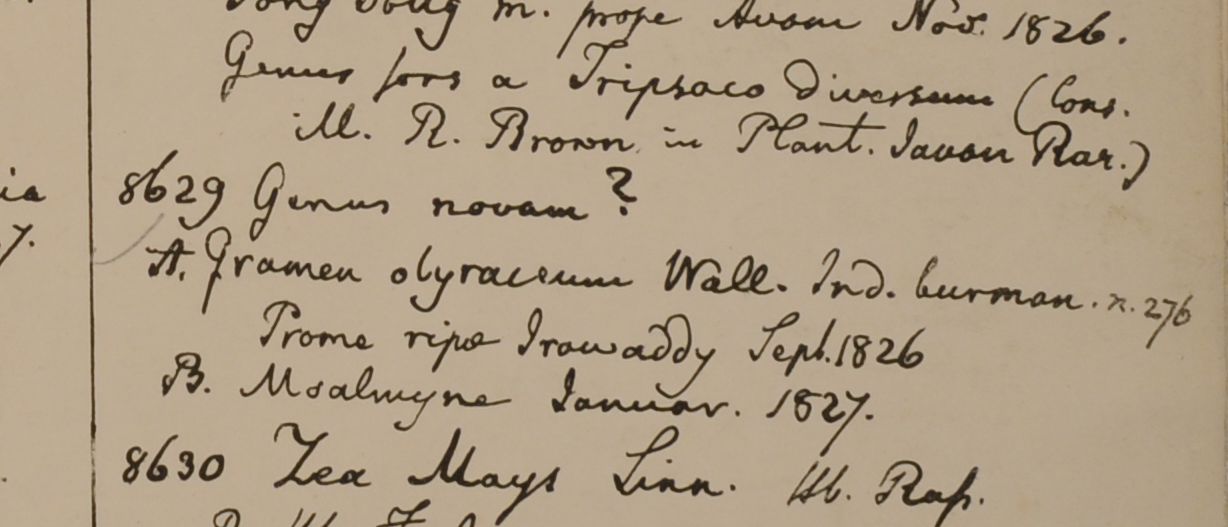 Tong Dong m. prope Avam Nov. 1826.
Genus fors a Tripsaco diversum (Cons.
M. R. Brown in Plant. Javan Rar.)
ia
8629 Genus novum?
7.
A. Gramen olyraceum Wall. Ind. burman. n. 276
Prome ripæ Irawaddy Sept. 1826
B. Moalmyne Januar. 1827.
8630 Zea Mays Linn. Hb. Rah.